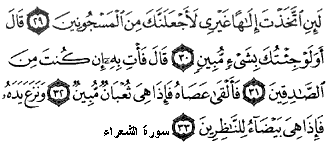 لَئِنِ ٱتَّخَذْتَ إِلَٰهًا غَيْرِى لَأَجْعَلَنَّكَ مِنَ ٱلْمَسْجُونِينَ ٢٩ قَالَ
أَوَلَوْ جِئْتُكَ بِشَىْءٍ مُّبِينٍ ٣٠ قَالَ فَأْتِ بِهِۦٓ إِن كُنتَ مِنَ
ٱلصَّٰدِقِينَ ٣١ فَأَلْقَىٰ عَصَاهُ فَإِذَا هِىَ ثُعْبَانٌ مُّبِينٌ ٣٢ وَنَزَعَ يَدَهُۥ
فَإِذَا هِىَ بَيْضَآءُ لِلنَّٰظِرِينَ ٣٣ سورة الشعراء